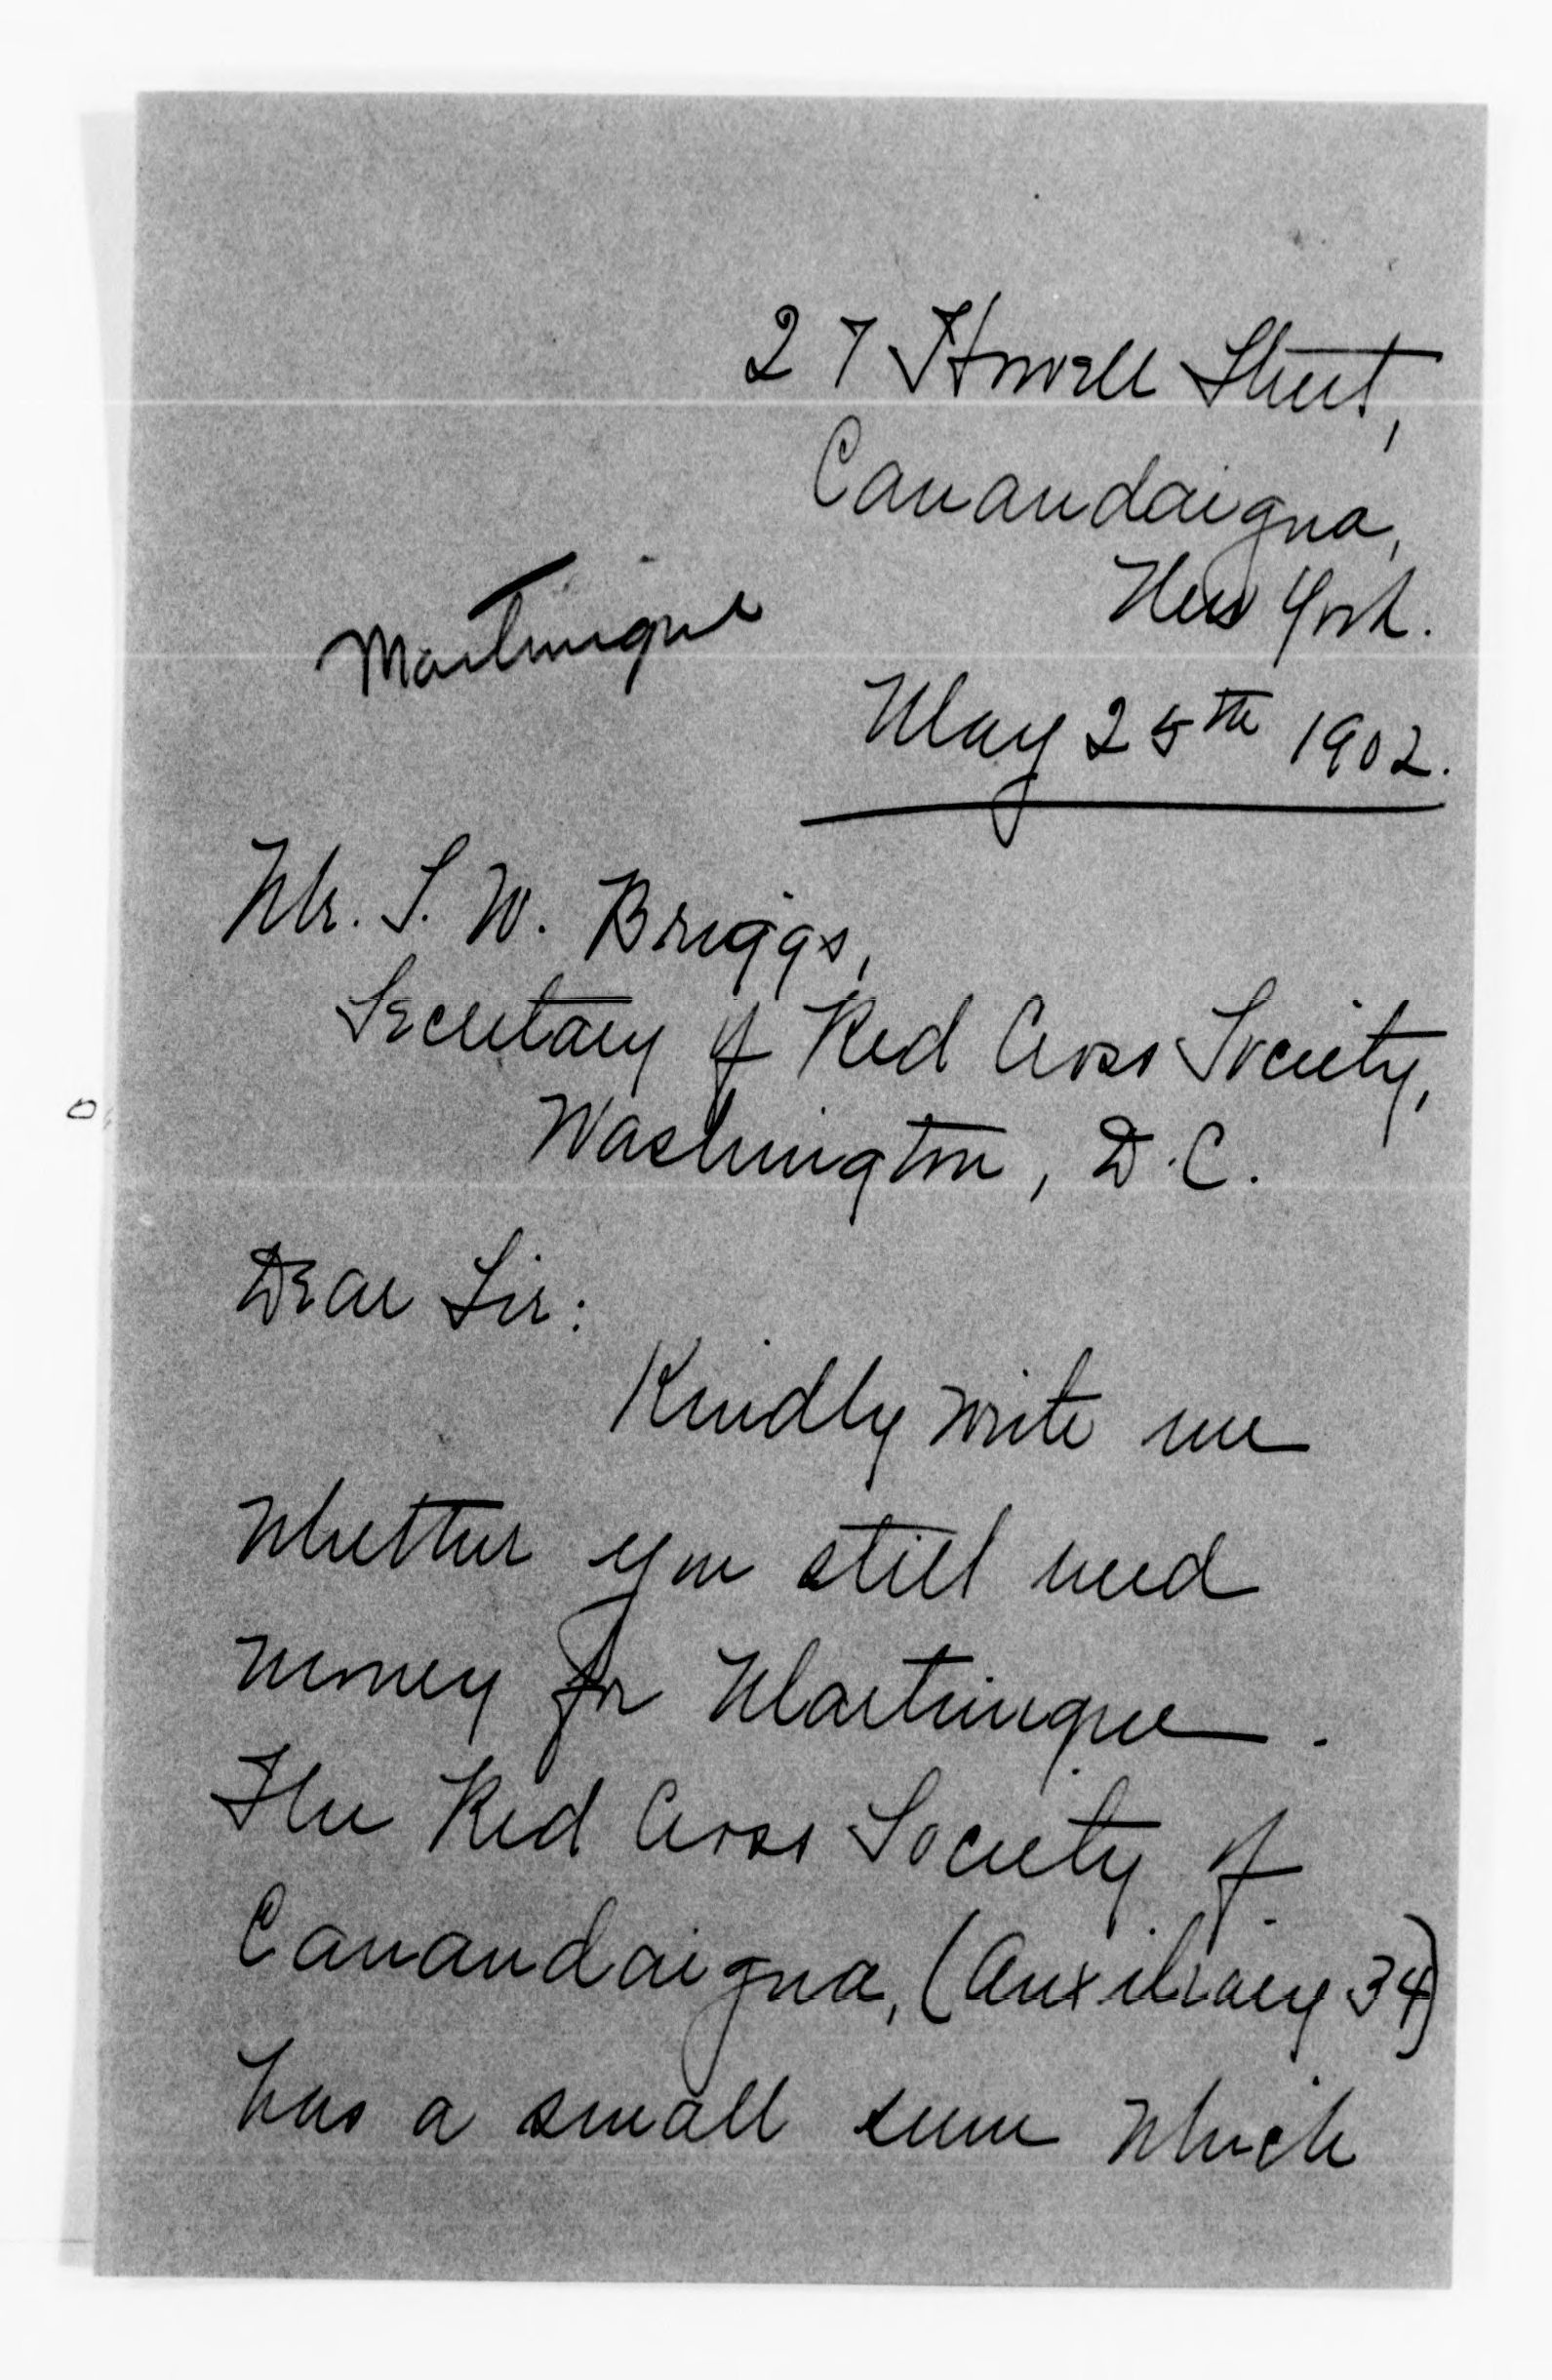 27 Howell Street,
Canandaigua,
New York.
Martinique
May 25th 1902.
Mr. S. W. Briggs,
Secretary of Red Cross Society,
Washington, D.C.
Dear Sir:
Kindly write me
whether you still need
money for Martinique.
The Red Cross Society of
Canandaigua, (Auxiliary 34)
has a small sum which